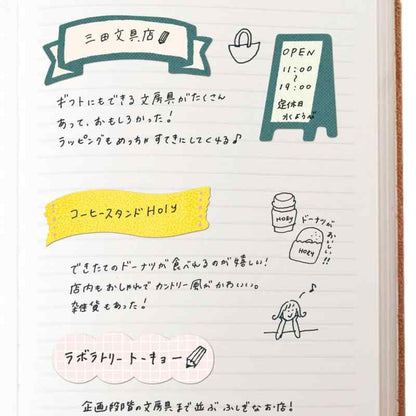 三田文具店
OPEN
11:00
〜
19:00
定休日
水くようび
ギフトにもできる文房具がたくさん
あって、おもしろかった!
ラッピングもめっちゃすてきにしてくれる♪
コーヒースタンドHoly
HOLY
ドーナツが
おいしい!!
HOLY
できたてのドーナツが食べれるのが嬉しい!
店内もおしゃれでカントリー風がかわいい。
雑貨もあった!
ラボラトリートーキョー
企画段階の文房具まで並ぶふしぎなお店!